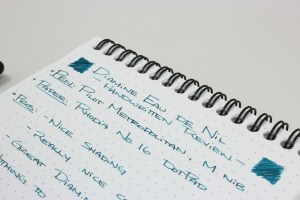 Diamine Eau de Nil
- Handwritten Review -
• Pen: Pilot Metropolitan, M Nib
• Paper: Rhodia No. 16 DotPad
• Pros:
- Nice shading
- Really nice
- Great Diamin
nothing to